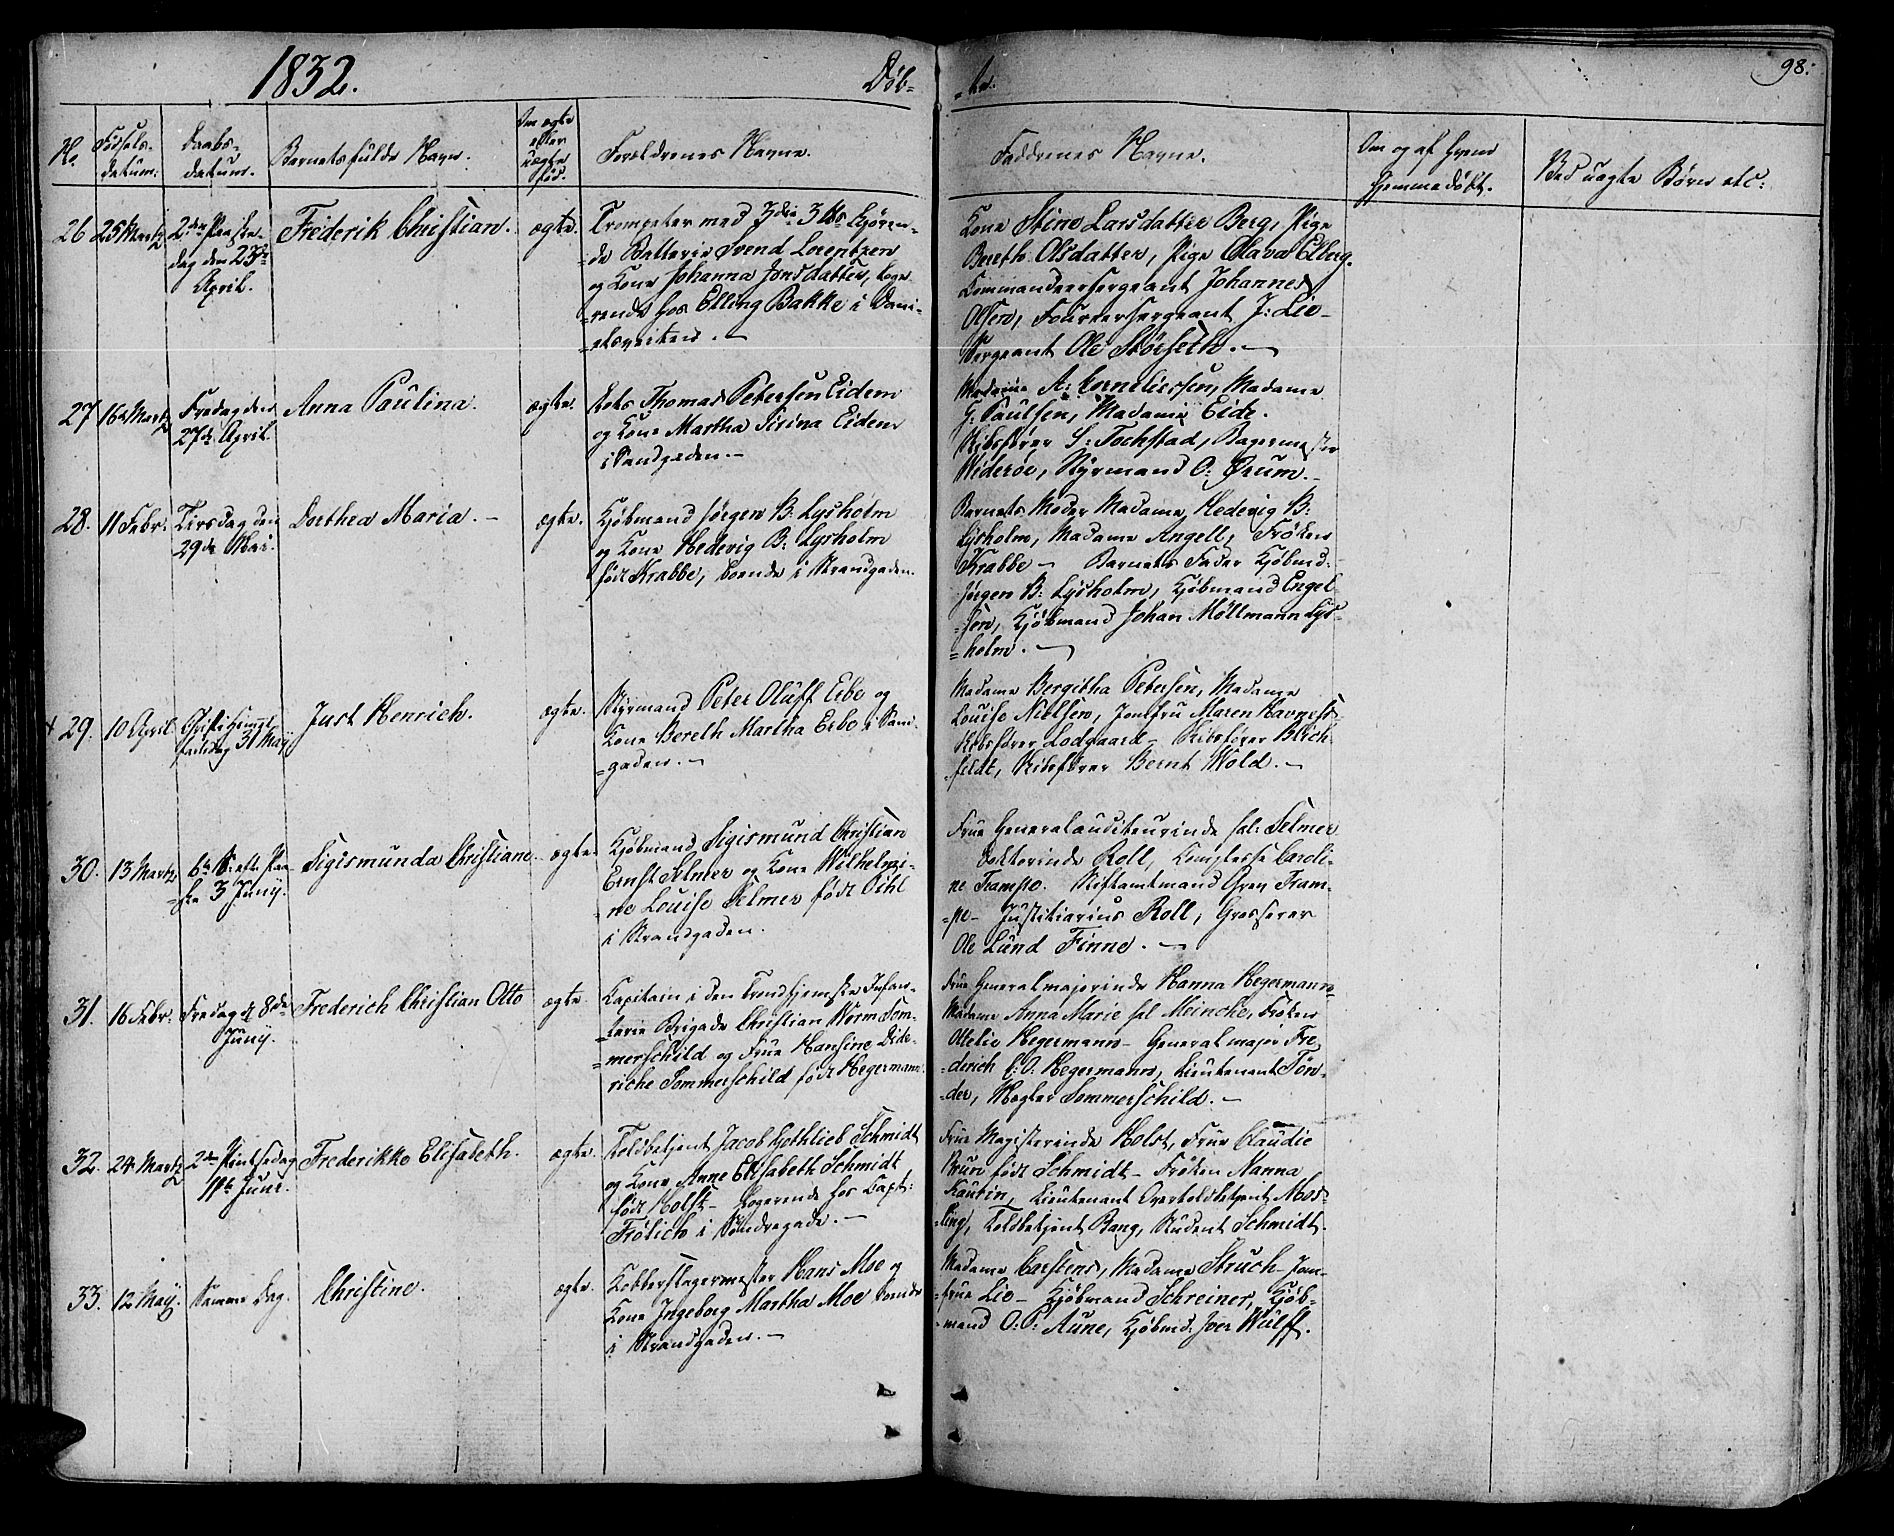 1832.
Döb-
-te.
98.
No.
Födsels-
datum:
Daabs-
datum.
Barnets fulde Navn.
Om ægte
eller
uægte
fød.
Forældrenes Navne.
Faddernes Navne.
Om og af Hvem
hjemmedöbt.
Ved uægte Börn etc:
26
25 Martz
2den Paaske-
dag den 23de
April.
Frederik Christian.
ægte.
Trompeter med 3die 3 tb Kjören-
-de Batterie Svend Lorentzen
og Kone Johanna Jonsdatter, loge-
-rende hos Elling Bakke i Dani-
-elsveiten.
Kone Stine Larsdatter Berg, Pige
Bereth Olsdatter, Pige Olava Elberg.
Commandeersergeant Johannes
Olsen, Fourersergeant J: Lie-
Sergeant Ole Störseth.
27
16 Martz
Fredag den
27de April.
Anna Paulina.
ægte.
Thomas Petersen Eidem
og Kone Martha Sirina Eidem
i Sandgaden.
Madame A: Corneliussen, Madame
G. Paulsen, Madame Eide.
Skibsförer S: Tochstad, Bagermester
Wideröe, Styrmand O: Örum.
28.
11 Febr.
Tirsdag den
29de Mai.
Dorthea Maria.
ægte.
Kjöbmand Jörgen B: Lysholm
og Kone Hedevig B: Lysholm
födt Krabbe, boende i Strandgaden.
Barnets Moder Madame Hedevig B:
Lysholm, Madame Angell, Fröken
Krabbe - Barnets Fader Kjöbmd:
Jörgen B: Lysholm, Kjöbmand Engel-
-sen, Kjöbmand Johan Möllmann Lys-
-holm.
29.
10 April
Christi Himmel-
fartsdag 31 Maij
Just Henrich.
ægte.
Styrmand Peter Oluff Erbo og
Kone Bereth Martha Erbo i Sand-
-gaden.
Madame Bergitha Petersen, Madame
Louise Nielsen, Jomfru Maren Havnes
Skibsförer Lodgaard - Skibsförer Blich-
feldt, Skibsförer Bernt Wold.
30.
13 Martz
6te S: eft. Paa-
-ske 3 Junij.
Sigismunda Christiane.
ægte.
Kjöbmand Sigismund Christian
Ernst Selmer og Kone Wilhelmi-
-ne Louise Selmer födt Pihl
i Strandgaden.
Frue Generalauditeurinde sal: Selmer
Doktorinde Roll, Comtesse Caroli-
ne Trampe. Stiftamtmand Grev Tram-
-pe - Justitiarius Roll, Grosserer
Ole Lund Finne.
31.
16 Febr.
Fredag d 8de
Junij.
Frederich Christian Otto
ægte.
Kapitain i den Trondhjemske Infan-
-terie Brigade Christian Worm Som-
-merschild og Frue Hansine Dide-
-riche Sommerschild födt Hegermann.
Frue Generalmajorinde Hanna Hegermann
Madame Anna Marie sal Meinche, Fröken
Ottelie Hegermann - Generalmajor Fre-
-derich C: O: Hegermann, Lieutenant Tön-
-der, Sommerschild.
32.
24 Martz
2den Pintsedag
11te Juni.
Frederikke Elisabeth.
ægte.
Toldbetjent Jacob Gothlieb Schmidt
og Kone Anne Elisabeth Schmidt
födt Holst - Logerende hos Capt:
Frölich i Söndregade.
Frue Magisterinde Holst, Frue Claudie
Bruun födt Schmidt - Fröken Nanna
Kaurin, Lieutenant Overtoldbetjent Mos-
-ling, Toldbetjent Bang, Student Schmidt.
33.
12 Maij.
Samme Dag.
Christine.
ægte.
Kobberslagermester Hans Moe og
Kone Ingeborg Martha Moe boende
i Strandgaden.
Madame Carstens, Madame Struch - Jom-
-frue Lie - Kjöbmand Schreiner, Kjöb-
-mand O: P: Aune, Kjöbmd: Iver Wulff.